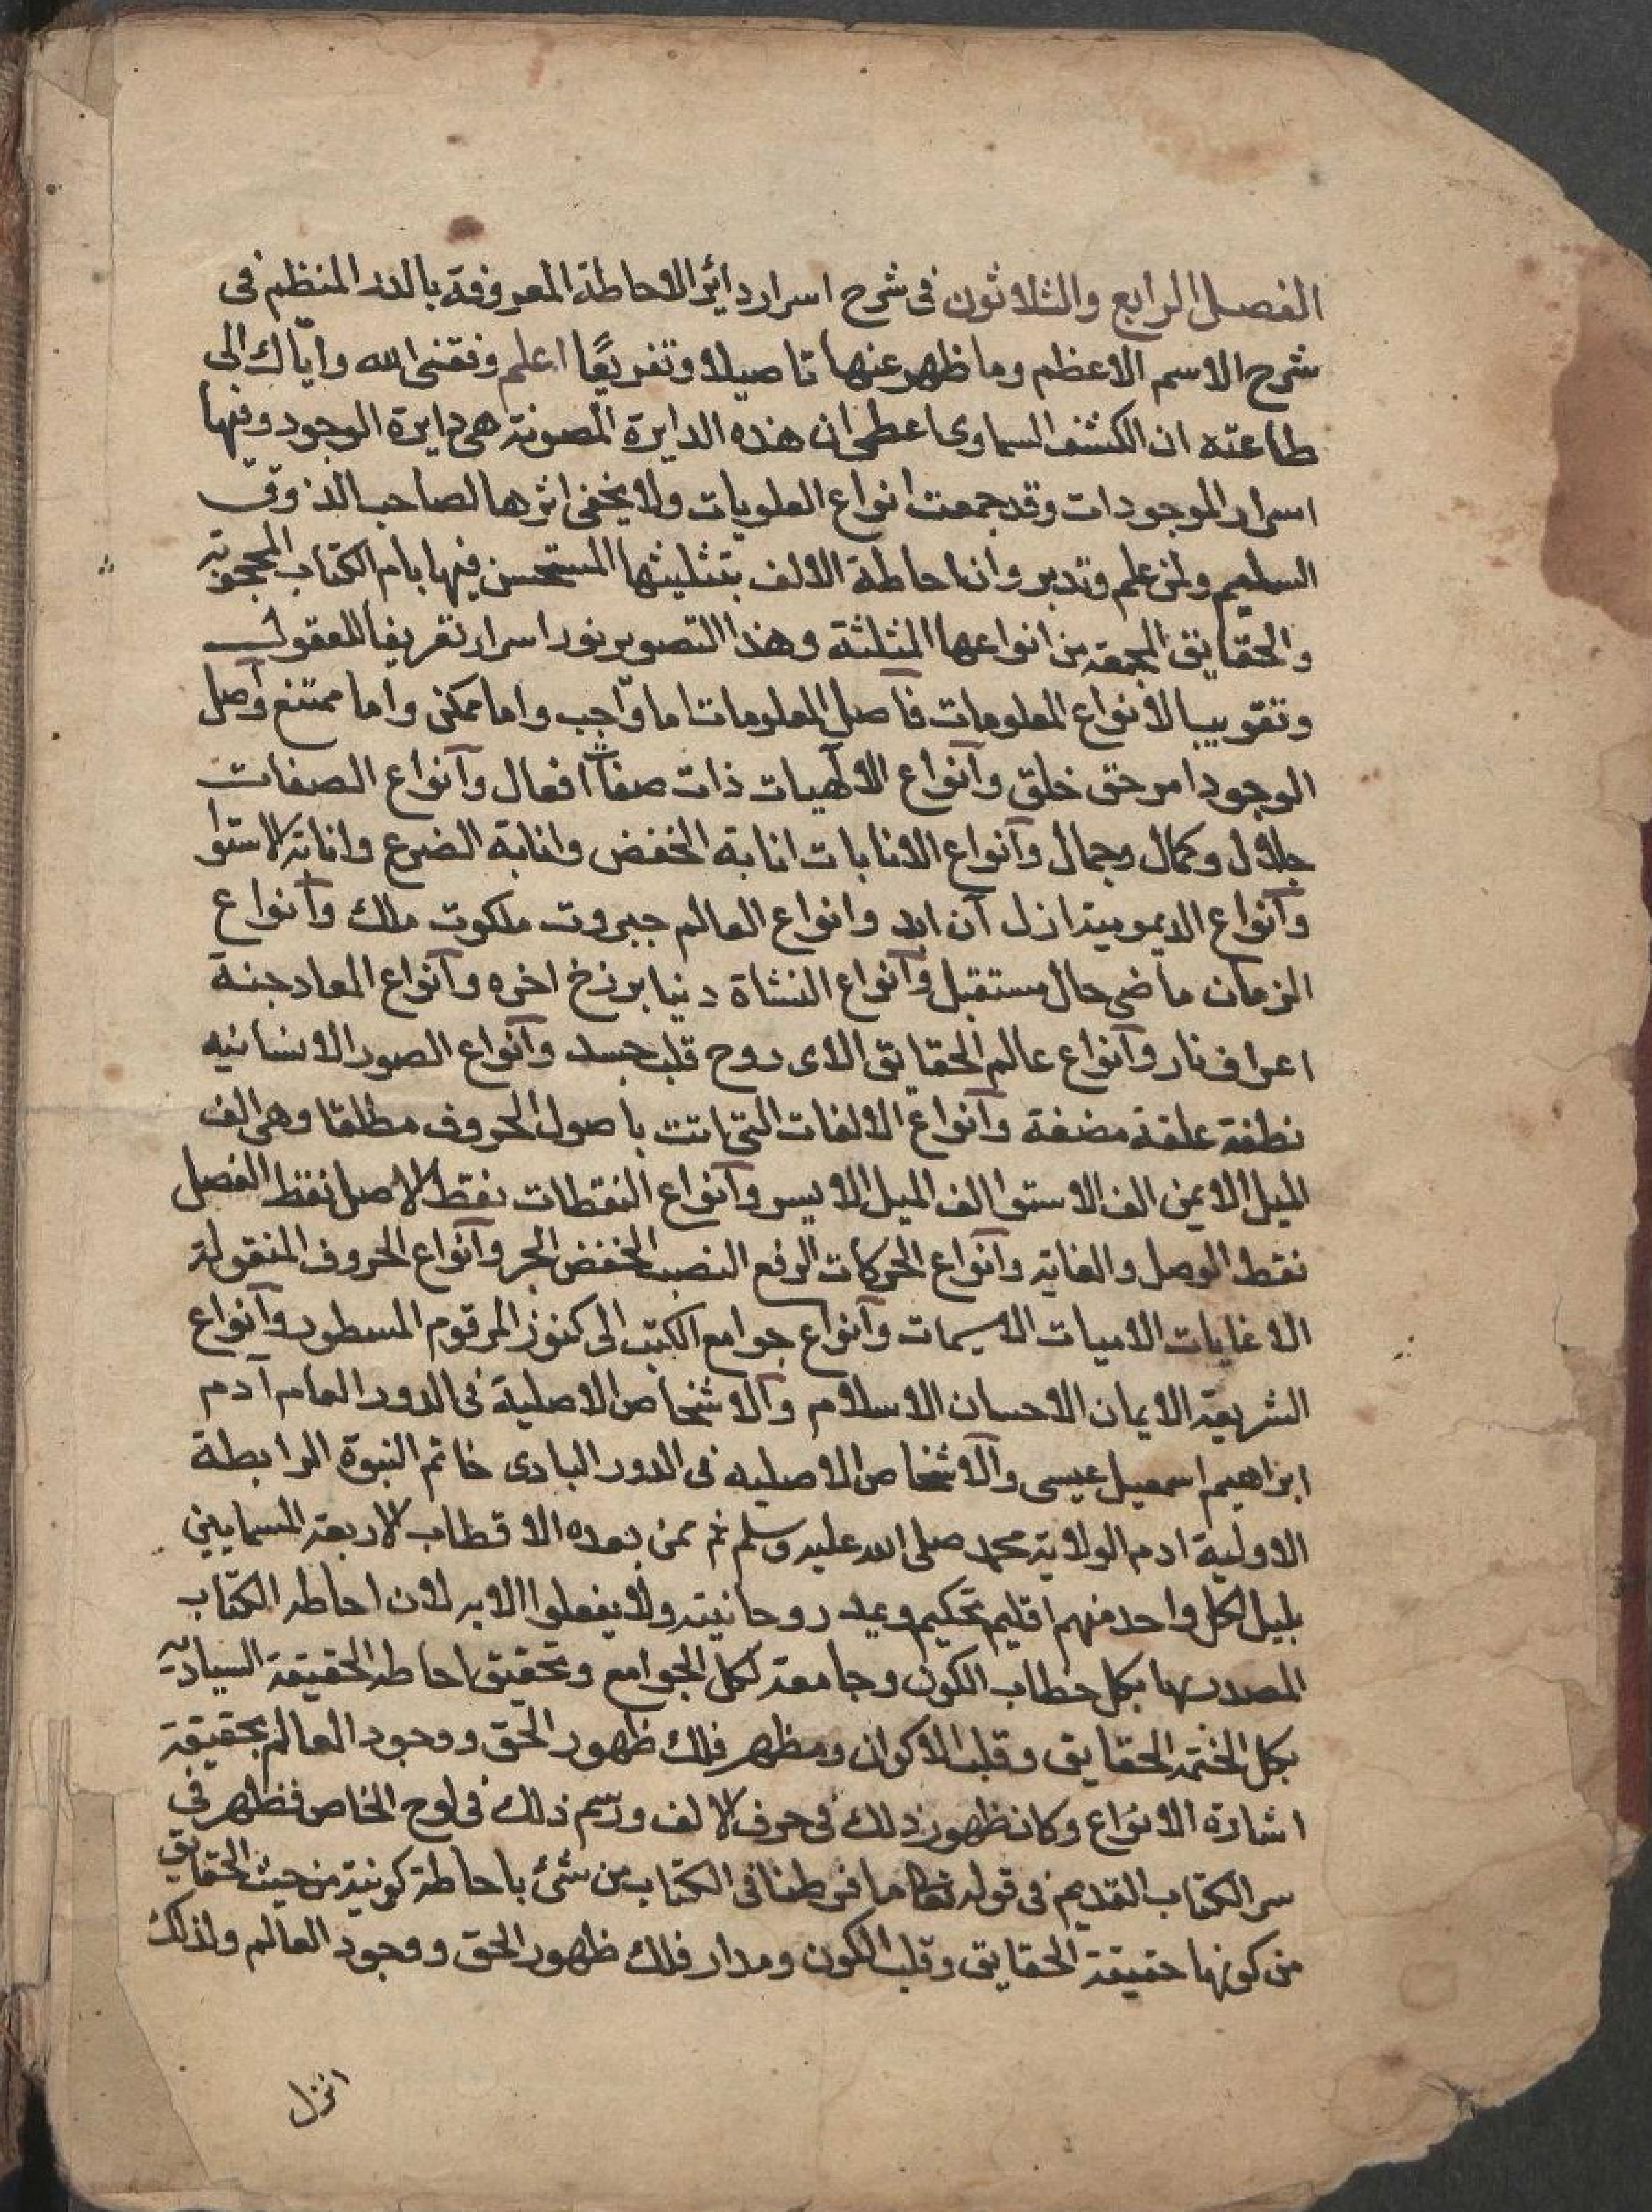 الفصل الرابع والثلاثون فى شرح اسرار دائر الاحاطة المعروفة بالدر المنظم فى
شرح الاسم الاعظم وما ظهر عنها تاصيلا وتفريعًا اعلم وفقنى الله واياك الى
طاعته ان الكشف السماوى اعطى ان هذه الدايرة المصونة هى دايرة الوجود وفيها
اسرار الموجودات وقد جمعت انواع العلويات ولا يخفى اثرها لصاحب الذوق
السليم ولمن علم وتدبر وان احاطة الالف بتثليثها المستحسن فيها بام الكتاب
والحقايق من انواعها المثلثة وهذا التصوير نور اسرار تعريفا للعقول
وتقويبا لانواع المعلومات فاصل المعلومات اما واجب واما ممكن واما ممتنع واصل
الوجود امر حق خلق وآنواع الالهيات ذات صفات افعال وآنواع الصفات
جلال وكمال وجمال وآنواع الانابات انابة الخفض وانابة الضرع وانابة الاستوا
وآنواع الديمومية ازل آن ابد وانواع العالم جبروت ملكوت ملك وآنواع
الزمان ماضى حال مستقبل وآنواع النشاة دنيا برزخ اخره وآنواع المعاد جنة
اعراف نار وآنواع عالم الحقايق الاى روح قلب جسد وآنواع الصور الانسانيه
نطفة علقة مضغة وآنواع الالفات التى اتت باصول الحروف مطلقا وهى الف
الميل الايمن الف الاستوا الف الميل الايسر وآنواع النقطات نقط الاصل نقط الفصل
نقط الوصل والغاية وآنواع الحركات الرفع النصب الخفض الجر وآنواع الحروف المنقولة
الاغايات الاميات وآنواع جوامع الكتب الى كنوز المرقوم المسطور وآنواع
الشريعة الايمان الاحسان الاسلام وآلاشخاص الاصلية فى الدور العام آدم
ابراهيم اسمعيل عيسى وآلاشخاص الاصليه فى الدور البادى خاتم النبوة الرابطة
الاولية ادم الولاية محمد صلى الله عليه وسلم ثم من بعده الاقطاب الاربعة
لكل واحد منهم اقليم روحانيته ولا يفعلوا الا به لان احاطة الكتاب
بكل خطاب الكون وجامعة لكل الجوامع وتحقيق احاطة الحقيقة
بكل الحقايق وقلب الاكوان ومظهر فلك ظهور الحق ووجود العالم بحقيقة
اشارة الانواع وكان ظهور ذلك فى حرف الالف ورسم ذلك فى لوح الخاص فظهر فى
سر الكتاب القديم فى قوله تعالى ما فرطنا فى الكتاب من شئ باحاطة كونية من حيث الحقايق
من كونها حقيقة الحقايق وقلب الكون ومدار فلك ظهور الحق ووجود العالم ولذلك
انزل